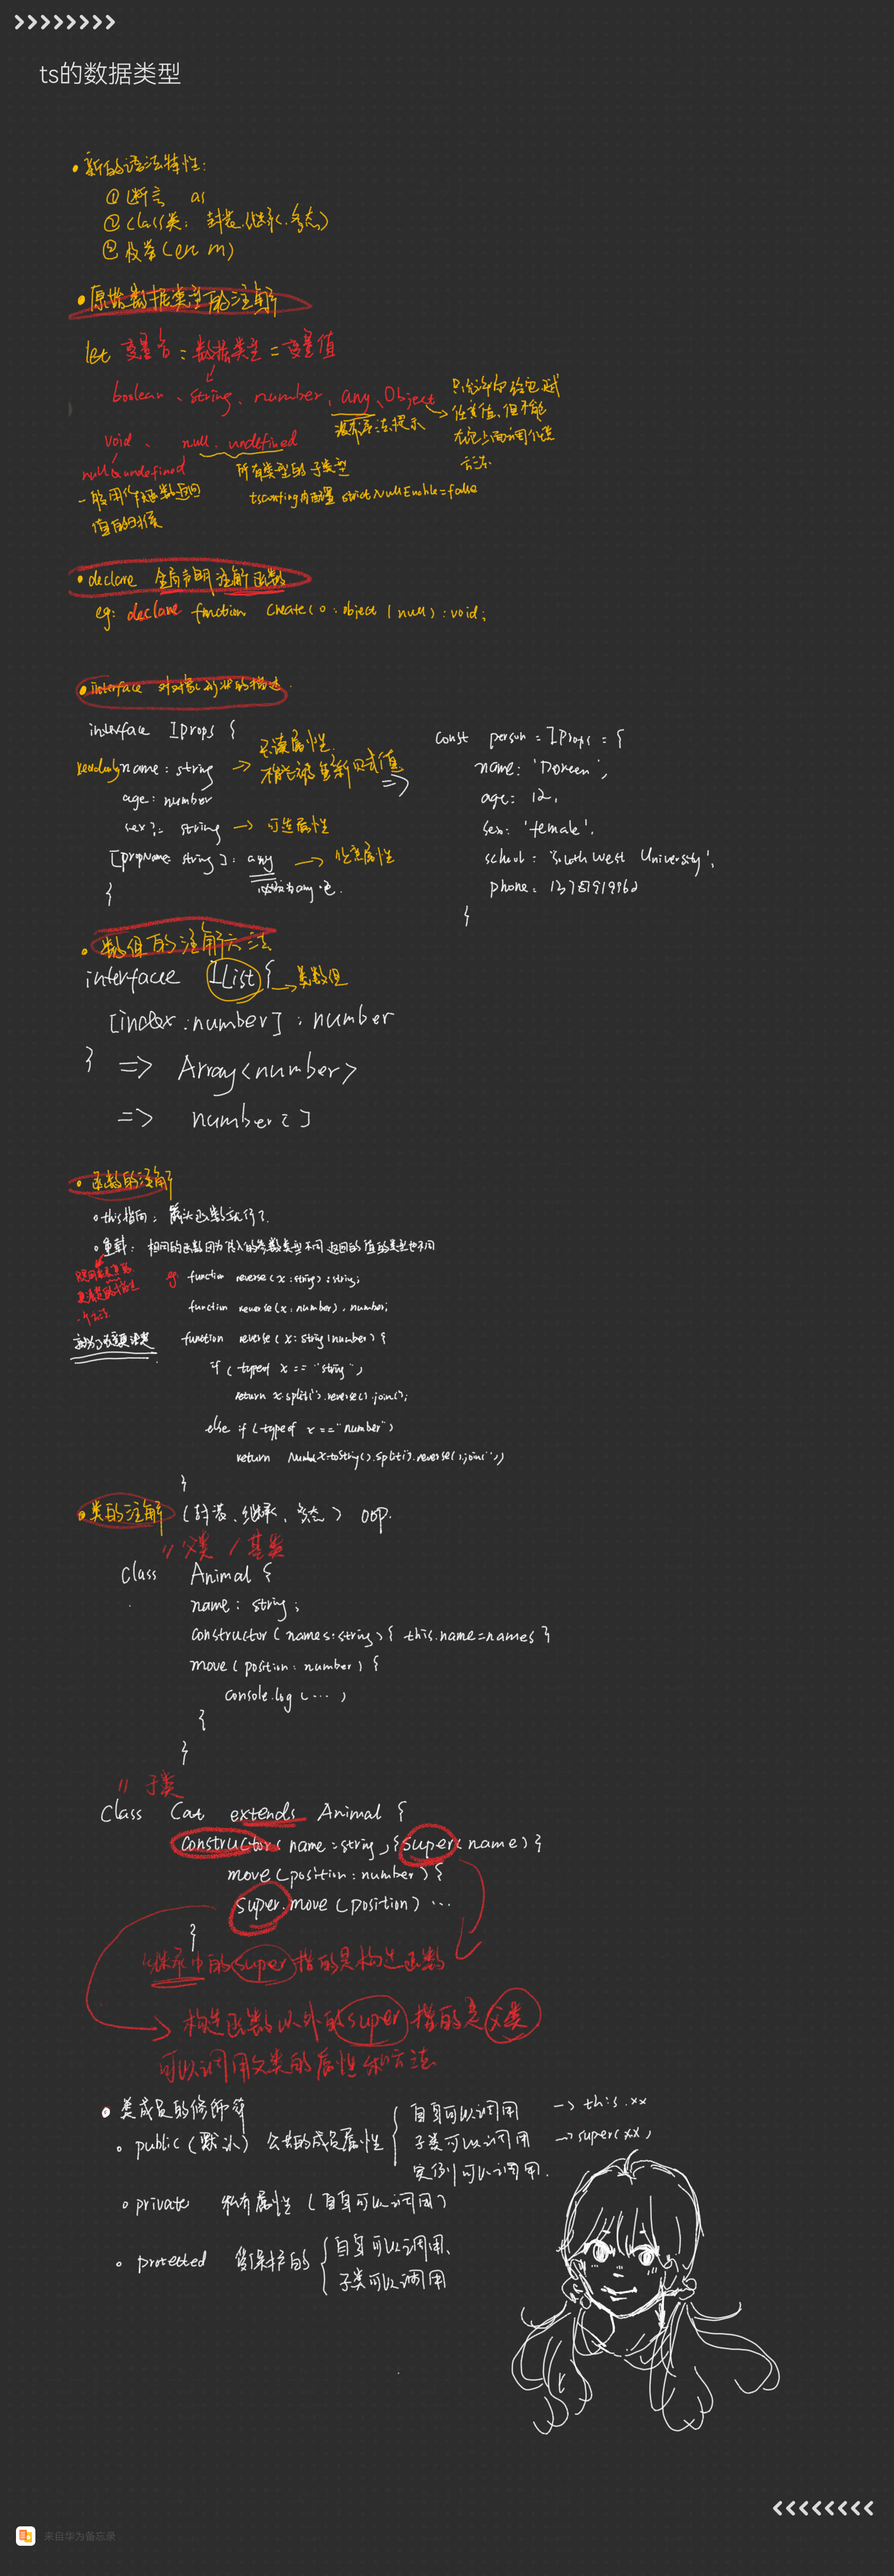 ts的数据类型
• 新的语法特性:
① 断言 as
② class类: 封装.继承.多态)
③ 枚举(en m)
• 原始数据类型的注解
let 变量名 : 数据类型 = 变量值
boolean 、string、number、any、Object
只允许你给它赋
任意值,但不能
在它上面调用任意
方法
没有语法提示
void 、 null、undefined
null&undefined
所有类型的子类型
一般用作函数返回
值的时候
tsconfing内配置 strictNullEnable=false
• declare 全局声明 注解函数
eg: declare function Create(o : object | null) : void;
• interface 对对象形状的描述.
interface Iprops {
readonly name : string → 只读属性.
age: number
sex?: string → 可选属性
[propName: string] : any → 任意属性
}
=>
const person = IProps = {
name: 'Doreen',
age: 12,
sex: 'female',
school: 'South West University',
}
• 数组的注解方法
interface IList { → 类数组
[index : number] : number
} => Array<number>
=> number[]
• 函数的注解
o this指向: 箭头函数就行了.
o 重载: 相同的函数因为传入的参数类型不同 返回的值的类型也不同
eg: function reverse(x : string) : string;
function reverse(x : number) : number;
function reverse(x : string | number) {
if (typeof x == "string")
return x.split('').reverse().join('');
else if (typeof x == "number")
return Number x.toString().split('').reverse().join(''))
}
• 类的注解 (封装、继承、多态) OOP.
// 父类 / 基类
Class Animal {
name : string;
constructor(names:string){ this.name=names }
move(position: number) {
console.log(...)
}
}
// 子类
Class Cat extends Animal {
constructor(name:string){super(name)}
move(position:number){
super.move(position)...
}
继承中的super指的是构造函数
→ 构造函数以外的super指的是父类
可以调用父类的属性和方法
• 类成员的修饰符
o public (默认) 公共的成员属性 { 自身可以调用 -> this.xx
子类可以调用 -> super(xx)
实例可以调用.
o private 私有属性 (自身可以调用)
o protected 受保护的 { 自身可以调用、
子类可以调用
来自华为备忘录